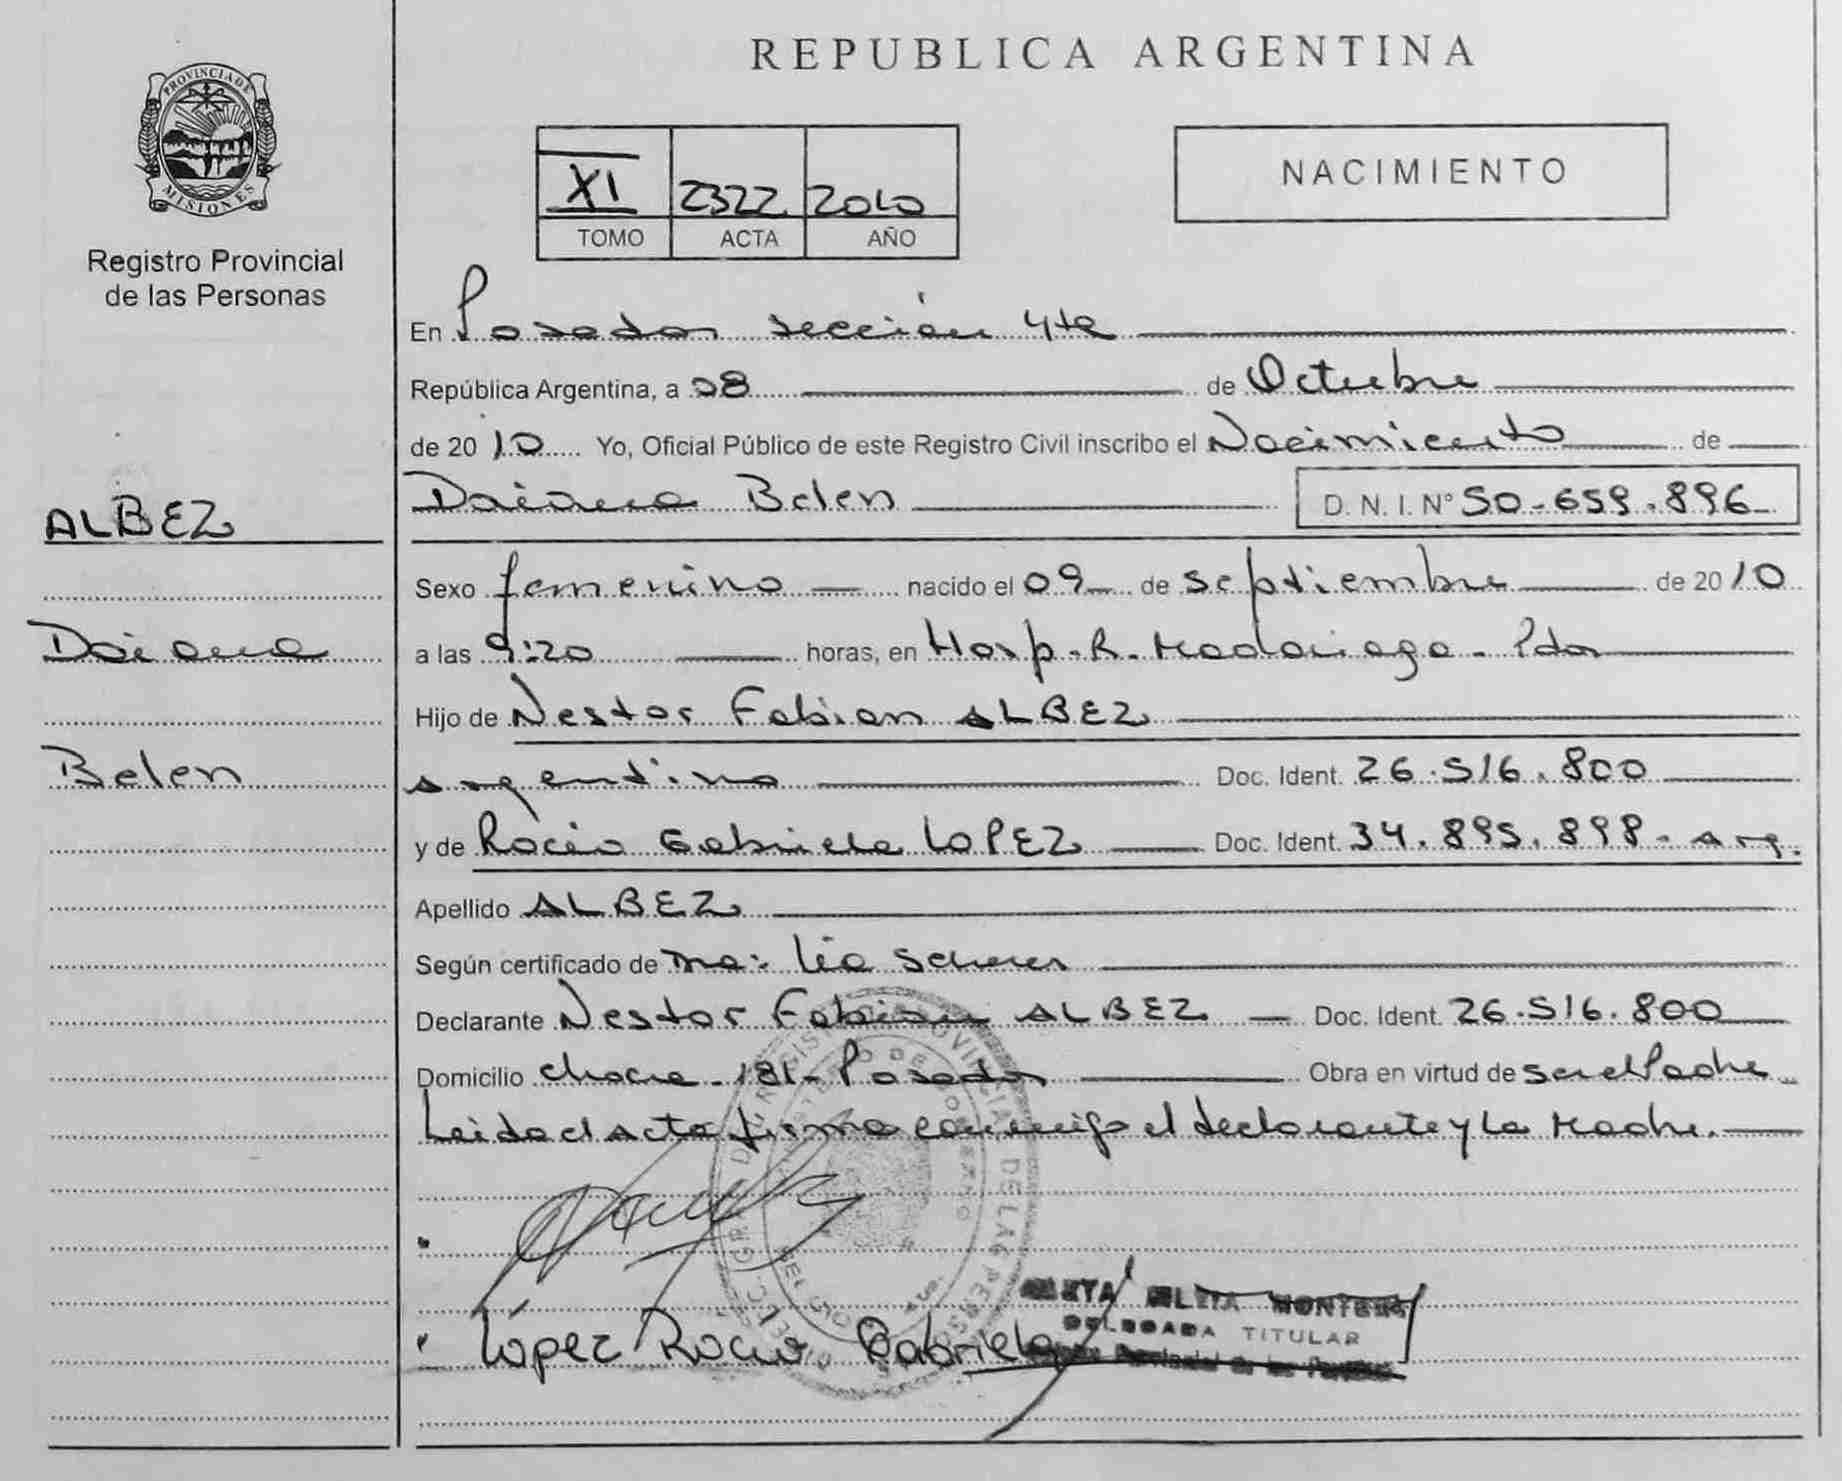 REPUBLICA ARGENTINA
PROVINCIA DE
MISIONES
Registro Provincial
de las Personas
XI 2322 2010
TOMO ACTA AÑO
NACIMIENTO
En Posadas sección 4ta
República Argentina, a 08 de Octubre
de 2010 Yo, Oficial Público de este Registro Civil inscribo el Nacimiento de
Daiana Belen D. N. I. N° 50.659.896
ALBEZ
Daiana
Belen
Sexo femenino nacido el 09 de septiembre de 2010
a las 9:20 horas, en Hosp. R. Madariaga - Pdas
Hijo de Nestor Fabian ALBEZ
argentino Doc. Ident. 26.516.800
y de Rocío Gabriela LOPEZ Doc. Ident. 34.895.898 - arg.
Apellido ALBEZ
Según certificado de Ma: Lia
Declarante Nestor Fabian ALBEZ Doc. Ident. 26.516.800
Domicilio chacra 181 - Posadas Obra en virtud de ser el Padre
Leida el acta firma conmigo el declarante y la Madre.
López Rocio Gabriela
DELEGADA TITULAR